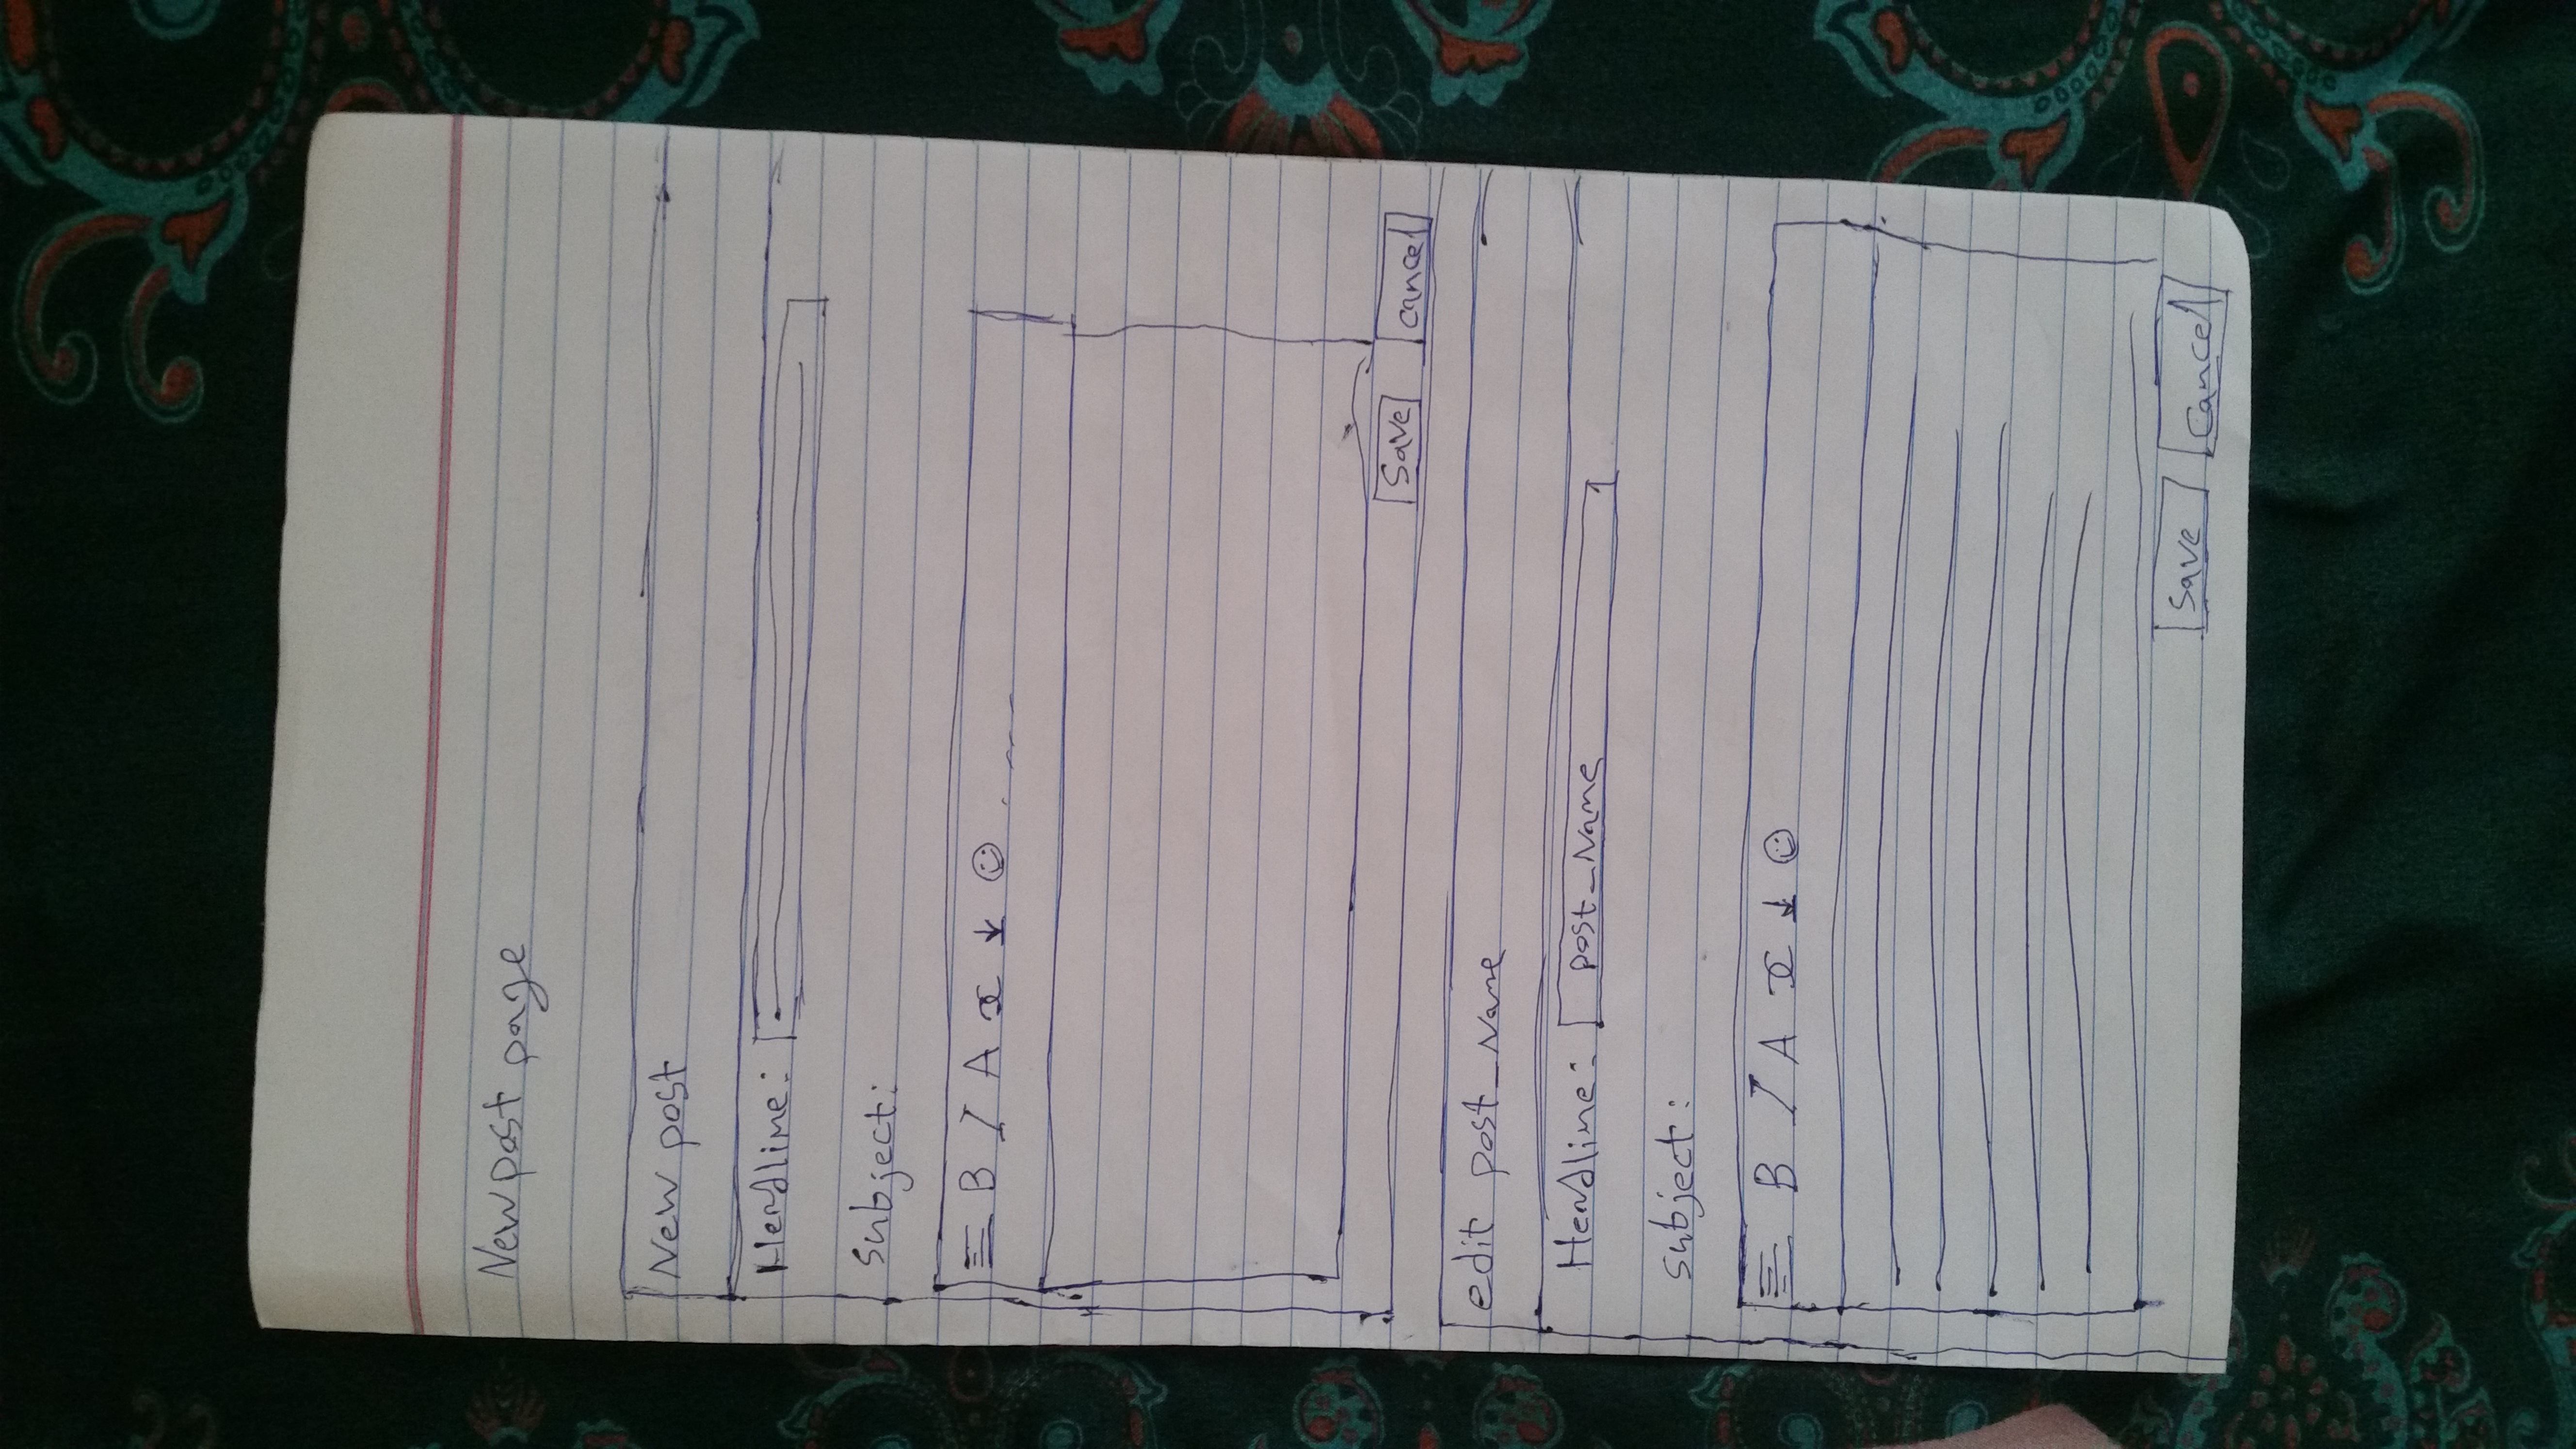 New post page
New post
Hendline:
Subject:
B I A x ↓ ☺ . ---
Save cancel
edit post_Name
Hendline: post_Name
subject:
B I A x ↓ ☺
Save Cancel